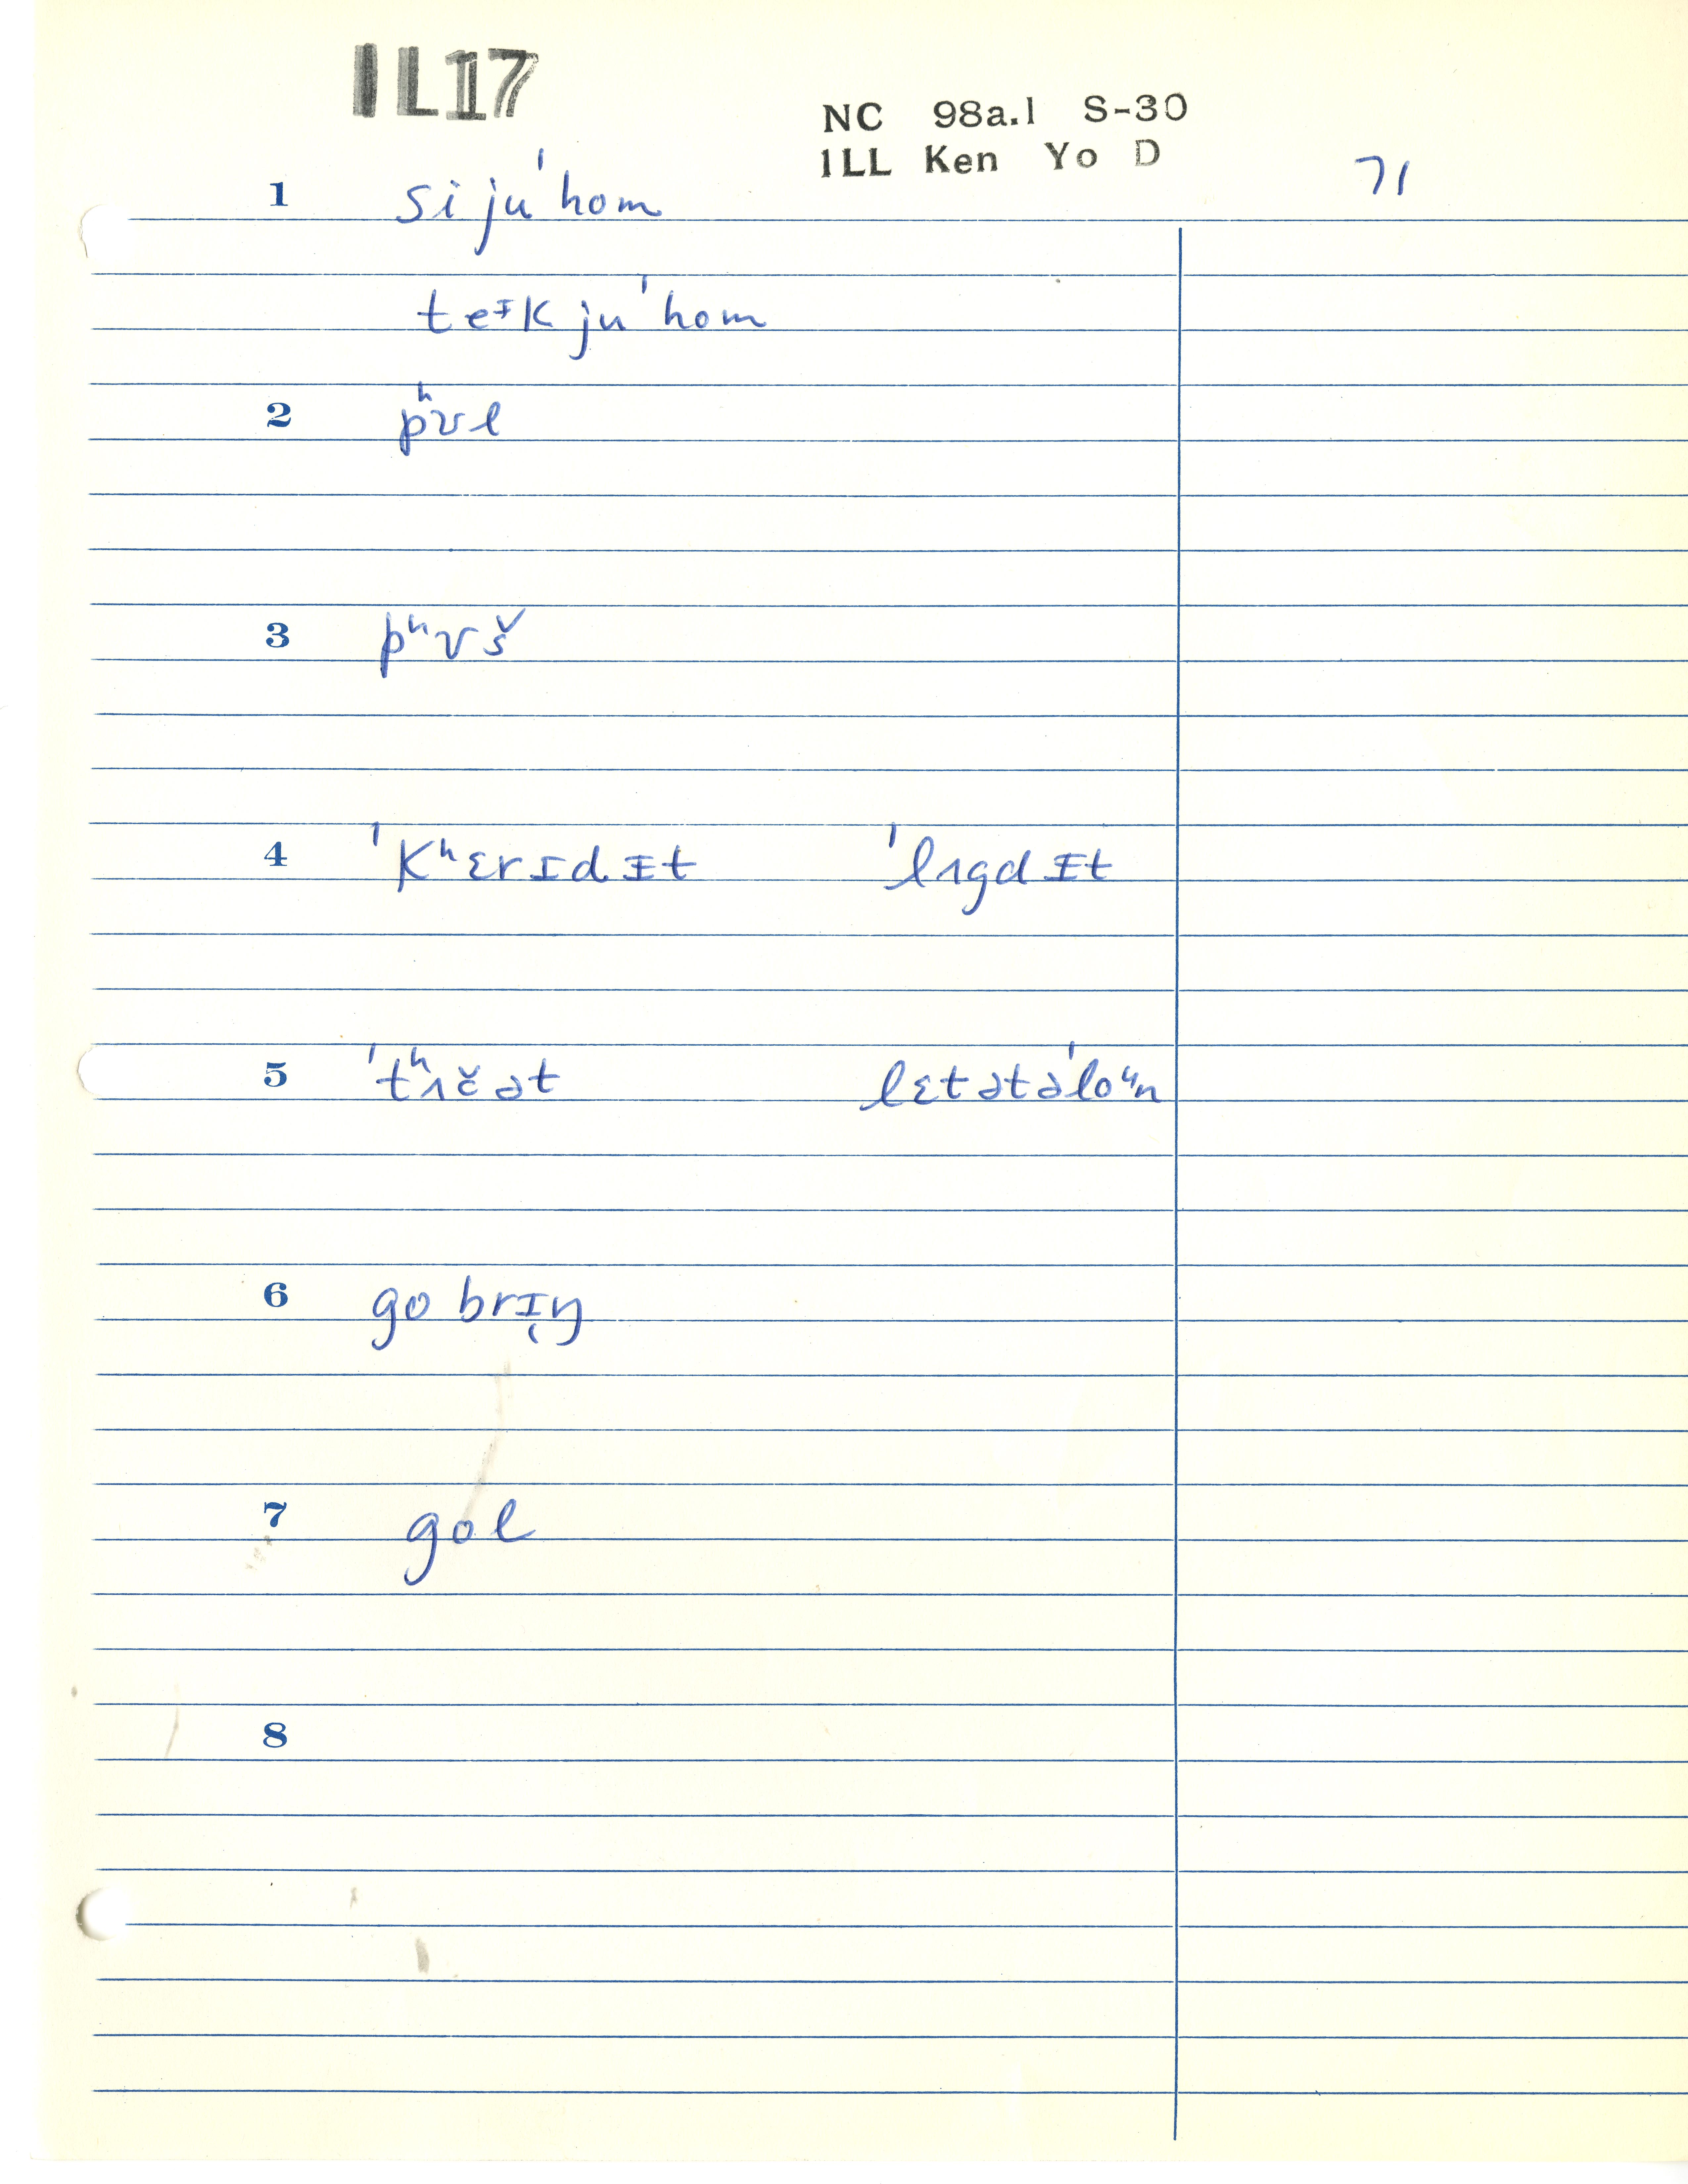 IL17
NC 98a.1 S-30
ILL Ken Yo D
71
1 si ju ˈhom
teᵻk ju ˈhom
2 pʰʊl
3 pʰʊš
4 ˈkʰɛrɪdᵻt ˈlʌgdᵻt
5 ˈtʰʌčət lɛt ət əˈloᵘn
6 go brɪ̜ŋ
7 gol
8